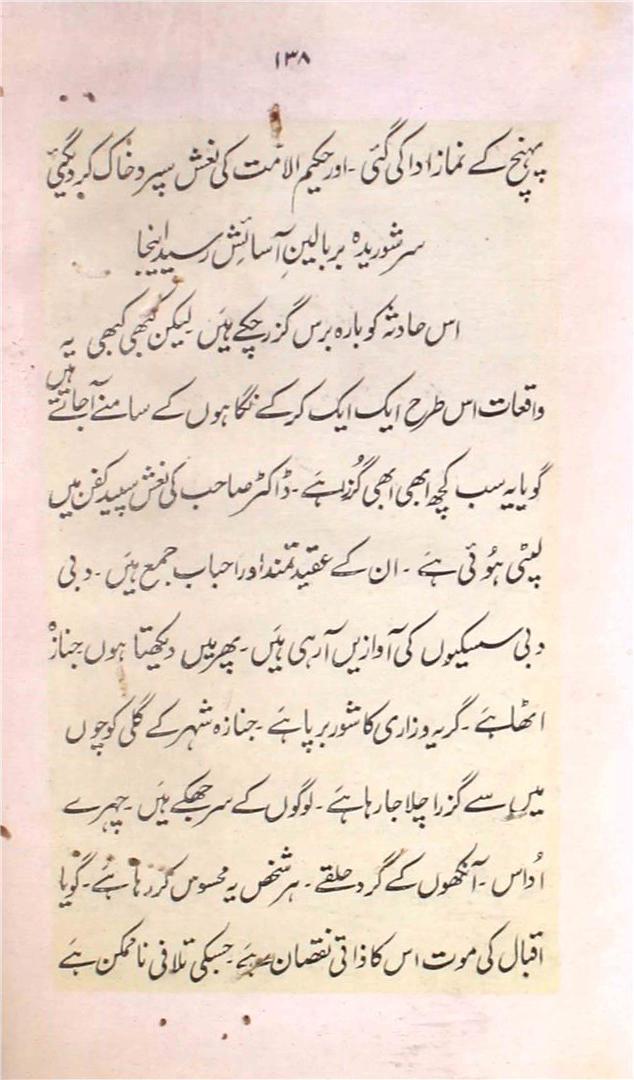 ۱۳۸
پہنچ کے نماز ادا کی گئی ۔ اور حکیم الامت کی نعش سپرد خاک کر دیگئی
سر شوریدہ بر بالینِ آسائش رسید اینجا
اس حادثہ کو بارہ برس گزر چکے ہیَں لیکن کبھی کبھی یہ
واقعات اس طرح ایک ایک کرکے نگاہوں کے سامنے آجاتے ہیں
گویا یہ سب کچھ ابھی ابھی گُزرا ہےَ ۔ ڈاکٹر صاحب کی نعش سپید کفن میں
لپٹی ہُوئی ہےَ ۔ ان کے عقیدتمند اور احباب جمع ہیَں ۔ دبی
دبی سسکیوں کی آوازیں آرہی ہیَں ۔ پھر میں دیکھتا ہوں جنازہ
اٹھا ہےَ ۔ گریہ وزاری کا شور برپا ہےَ ۔ جنازہ شہر کے گلی کوچوں
میں سے گزرا چلا جا رہا ہےَ ۔ لوگوں کے سر جھکے ہیَں ۔ چہرے
اُداس ۔ آنکھوں کے گرد حلقے ۔ ہر شخص یہ محسوس کر رہا ہےَ ۔ گویا
اقبال کی موت اس کا ذاتی نقصان ہےَ ۔ جسکی تلافی ناممکن ہےَ